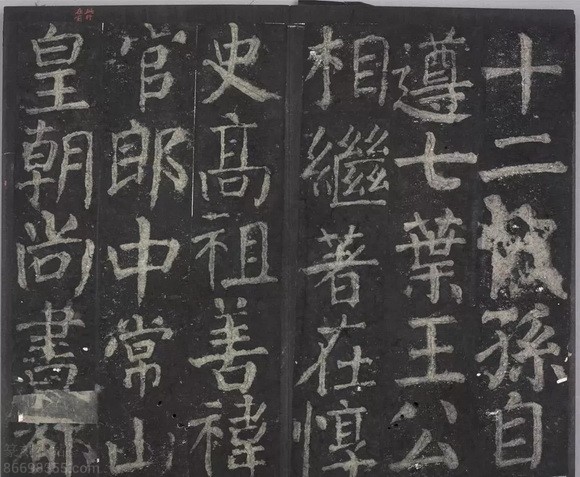 十二孫自
遵七葉王公
相繼著在惇
史高祖善禕
官郎中常山
皇朝尚書
86698355.com